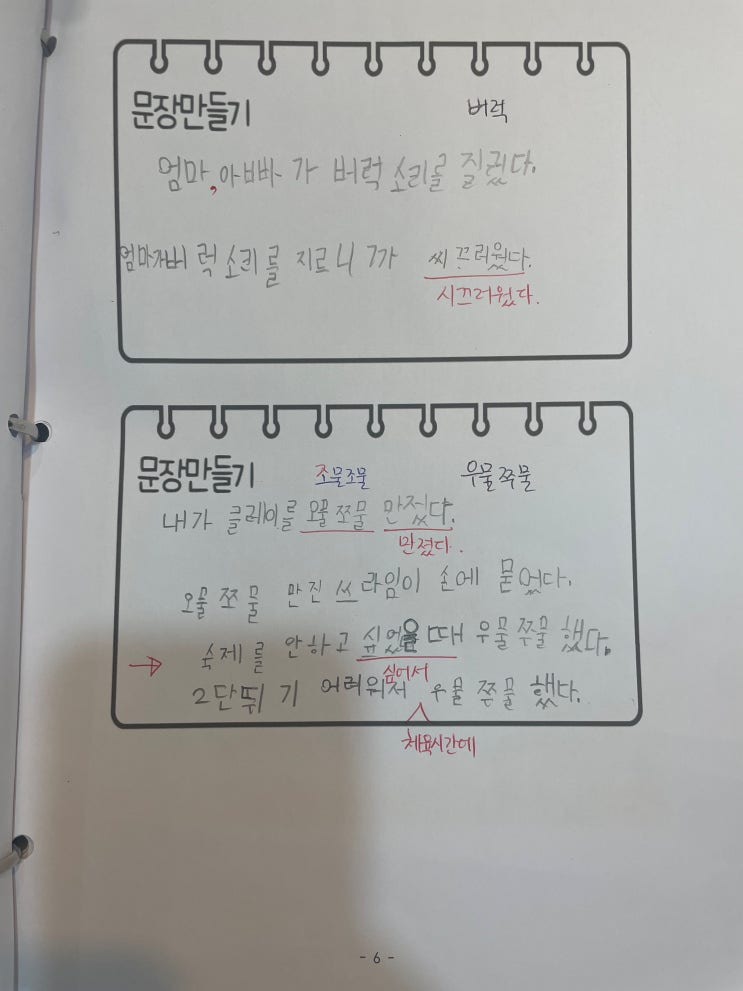 문장만들기 버럭
엄마, 아빠가 버럭 소리를 질렀다.
엄마가 버럭 소리를 지르니 귀가 씨끄러웠다.
시끄러웠다.
문장만들기 조물조물 우물쭈물
내가 클레이를 오물쪼물 만젔다.
만졌다.
오물쪼물 만진 쓰라임이 손에 묻었다.
숙제를 안하고 싶었을 때 우물쭈물 했다.
→ 싶어서
2단뛰기 어려워서 우물쭈물 했다.
체육시간에
- 6 -